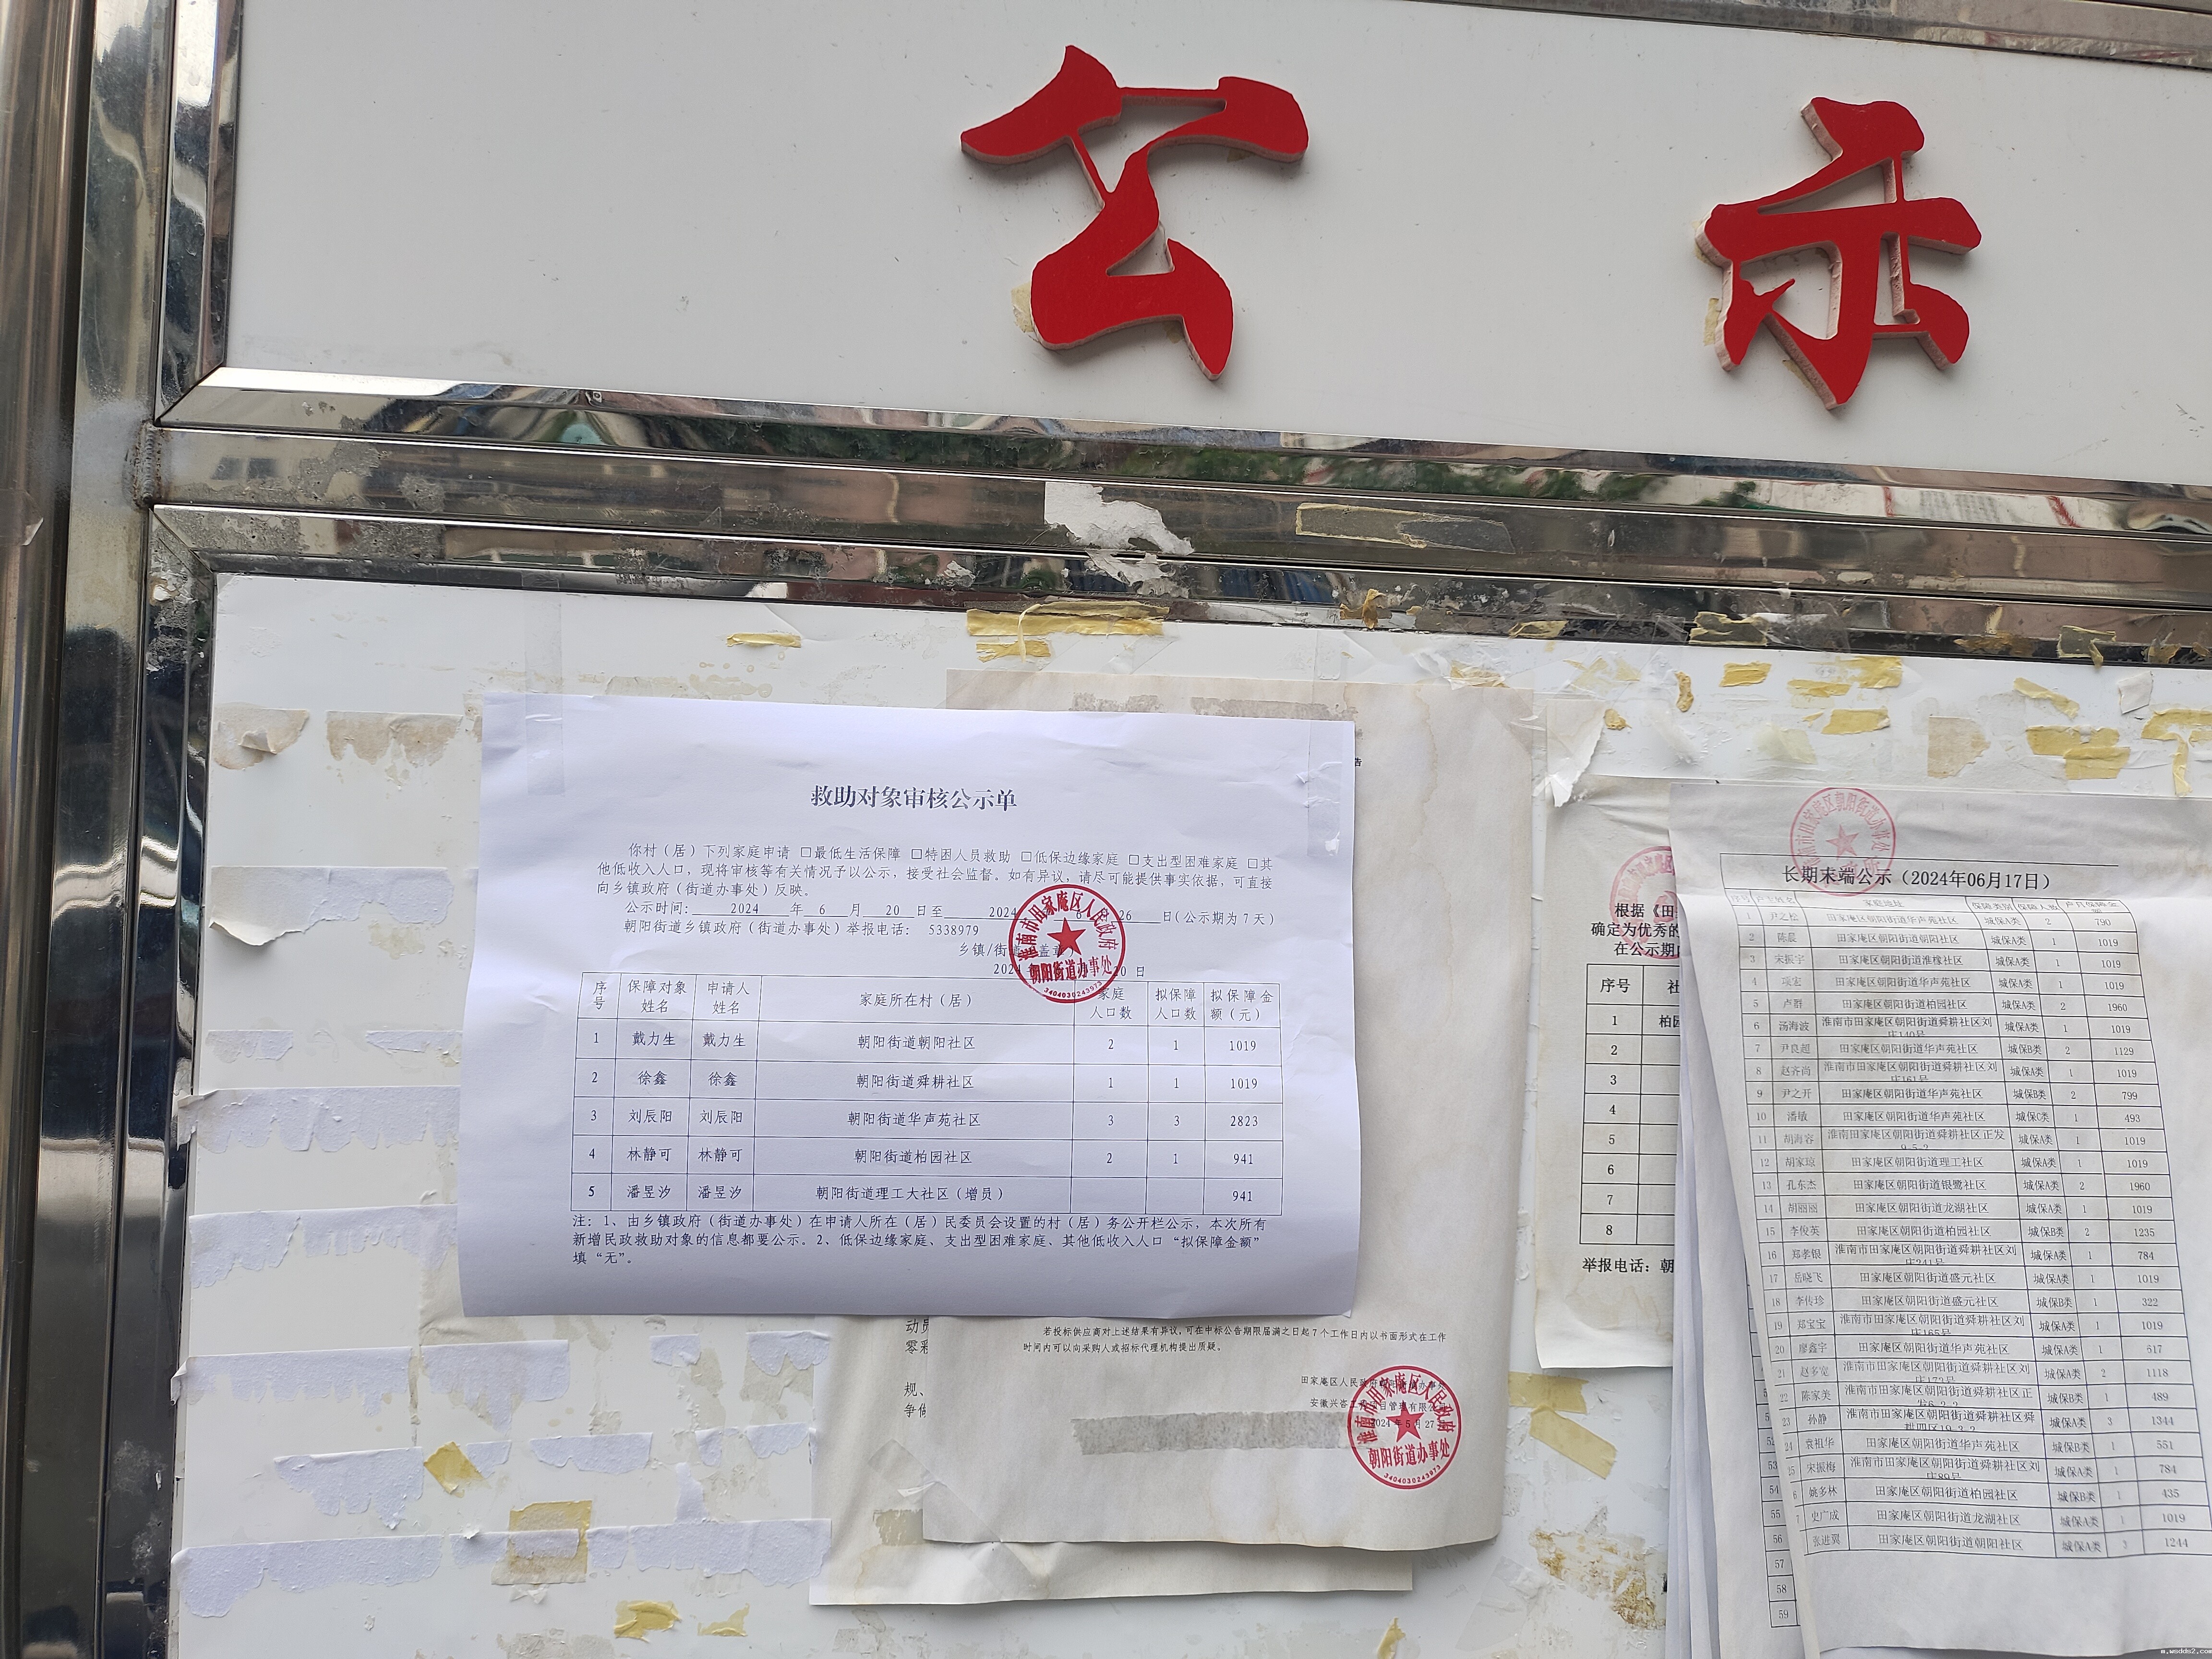 公示
救助对象审核公示单
你村（居）下列家庭申请 □最低生活保障 □特困人员救助 □低保边缘家庭 □支出型困难家庭 □其
他低收入人口，现将审核等有关情况予以公示，接受社会监督。如有异议，请尽可能提供事实依据，可直接
向乡镇政府（街道办事处）反映。
公示时间： 2024 年 6 月 20 日至 2024 6 26 日（公示期为 7 天）
朝阳街道乡镇政府（街道办事处）举报电话： 5338979
乡镇/街 盖章
2024 20 日
淮南市田家庵区人民政府
朝阳街道办事处
3404030243973
序号 保障对象姓名 申请人姓名 家庭所在村（居） 家庭人口数 拟保障人口数 拟保障金额（元）
1 戴力生 戴力生 朝阳街道朝阳社区 2 1 1019
2 徐鑫 徐鑫 朝阳街道舜耕社区 1 1 1019
3 刘辰阳 刘辰阳 朝阳街道华声苑社区 3 3 2823
4 林静可 林静可 朝阳街道柏园社区 2 1 941
5 潘昱汐 潘昱汐 朝阳街道理工大社区（增员） 941
注：1、由乡镇政府（街道办事处）在申请人所在（居）民委员会设置的村（居）务公开栏公示，本次所有
新增民政救助对象的信息都要公示。2、低保边缘家庭、支出型困难家庭、其他低收入人口 “拟保障金额”
填 “无”。
告
动员
零彩
规、
争做
若投标供应商对上述结果有异议，可在中标公告期限届满之日起 7 个工作日内以书面形式在工作
时间内可以向采购人或招标代理机构提出质疑。
田家庵区人民政府朝阳街道办事处
安徽兴咨工 项目管理有限公司
2024 年 5 月 27 日
淮南市田家庵区人民政府
朝阳街道办事处
3404030243973
根据《田
确定为优秀的
在公示期内
序号 社
1 柏园
2
3
4
5
6
7
8
举报电话：朝
淮南市田家庵区朝阳街道办事处
长期末端公示（2024年06月17日）
序号 户主姓名 家庭地址 保障类别 保障人数 户月保障金额
1 尹之松 田家庵区朝阳街道华声苑社区 城保A类 2 790
2 陈晨 田家庵区朝阳街道朝阳社区 城保A类 1 1019
3 宋振宇 田家庵区朝阳街道淮橡社区 城保A类 1 1019
4 项宏 田家庵区朝阳街道华声苑社区 城保A类 1 1019
5 卢群 田家庵区朝阳街道柏园社区 城保A类 2 1960
6 汤海波 淮南市田家庵区朝阳街道舜耕社区刘庄140号 城保A类 1 1019
7 尹良超 田家庵区朝阳街道华声苑社区 城保B类 2 1129
8 赵齐尚 淮南市田家庵区朝阳街道舜耕社区刘庄161号 城保A类 1 1019
9 尹之开 田家庵区朝阳街道华声苑社区 城保B类 2 799
10 潘敏 田家庵区朝阳街道华声苑社区 城保C类 1 493
11 胡海容 淮南田家庵区朝阳街道舜耕社区正发9-5-2 城保A类 1 1019
12 胡家琼 田家庵区朝阳街道理工社区 城保A类 1 1019
13 孔东杰 田家庵区朝阳街道银鹭社区 城保A类 2 1960
14 胡丽丽 田家庵区朝阳街道龙湖社区 城保A类 1 1019
15 李俊英 田家庵区朝阳街道柏园社区 城保B类 2 1235
16 郑孝银 淮南市田家庵区朝阳街道舜耕社区刘庄241号 城保A类 1 784
17 岳晓飞 田家庵区朝阳街道盛元社区 城保A类 1 1019
18 李传珍 田家庵区朝阳街道盛元社区 城保B类 1 322
19 郑宝宝 淮南市田家庵区朝阳街道舜耕社区刘庄165号 城保A类 1 1019
20 廖鑫宇 田家庵区朝阳街道华声苑社区 城保A类 1 617
21 赵多宽 淮南市田家庵区朝阳街道舜耕社区刘庄172号 城保A类 2 1118
22 陈家美 淮南市田家庵区朝阳街道舜耕社区正发6-2-2 城保B类 1 489
23 孙静 淮南市田家庵区朝阳街道舜耕社区舜耕四区19-3-2 城保A类 3 1344
24 袁祖华 田家庵区朝阳街道华声苑社区 城保B类 1 551
25 宋振梅 淮南市田家庵区朝阳街道舜耕社区刘庄89号 城保A类 1 784
6 姚多林 田家庵区朝阳街道柏园社区 城保B类 1 435
7 史广成 田家庵区朝阳街道龙湖社区 城保A类 1 1019
张进翼 田家庵区朝阳街道朝阳社区 城保A类 2 1244
52
53
54
55
56
57
58
59
m.wsdds2.com